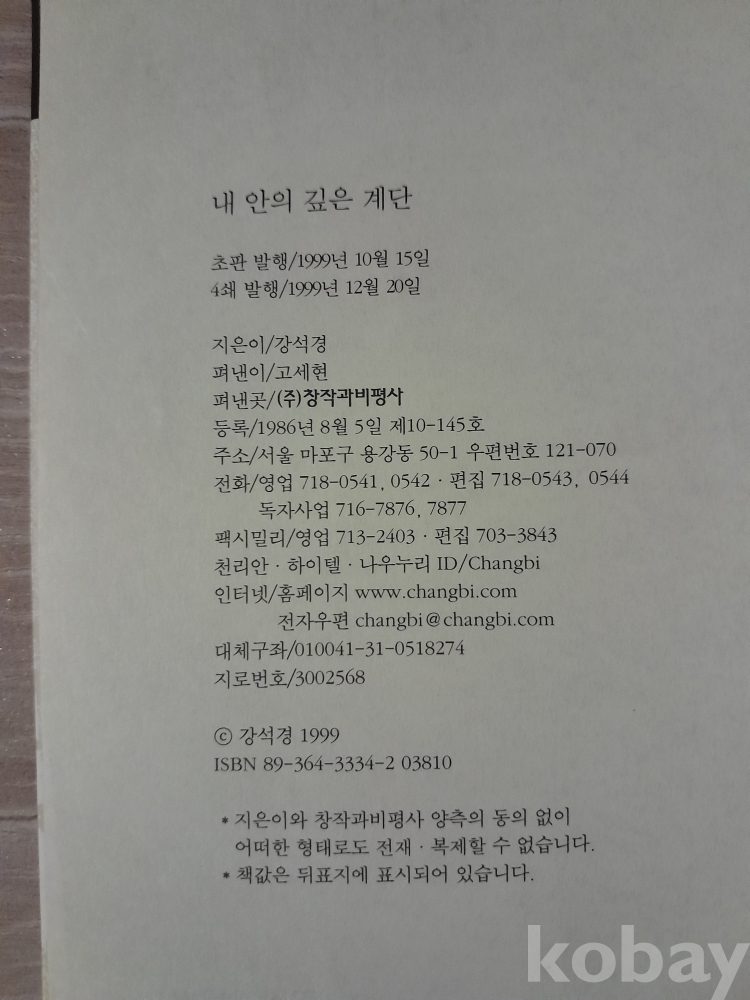 내 안의 깊은 계단
초판 발행/1999년 10월 15일
4쇄 발행/1999년 12월 20일
지은이/강석경
펴낸이/고세현
펴낸곳/(주)창작과비평사
등록/1986년 8월 5일 제10-145호
주소/서울 마포구 용강동 50-1 우편번호 121-070
전화/영업 718-0541, 0542 · 편집 718-0543, 0544
독자사업 716-7876, 7877
팩시밀리/영업 713-2403 · 편집 703-3843
천리안 · 하이텔 · 나우누리 ID/Changbi
인터넷/홈페이지 www.changbi.com
전자우편 changbi@changbi.com
대체구좌/010041-31-0518274
지로번호/3002568
ⓒ 강석경 1999
ISBN 89-364-3334-2 03810
* 지은이와 창작과비평사 양측의 동의 없이
어떠한 형태로도 전재 · 복제할 수 없습니다.
* 책값은 뒤표지에 표시되어 있습니다.
kobay